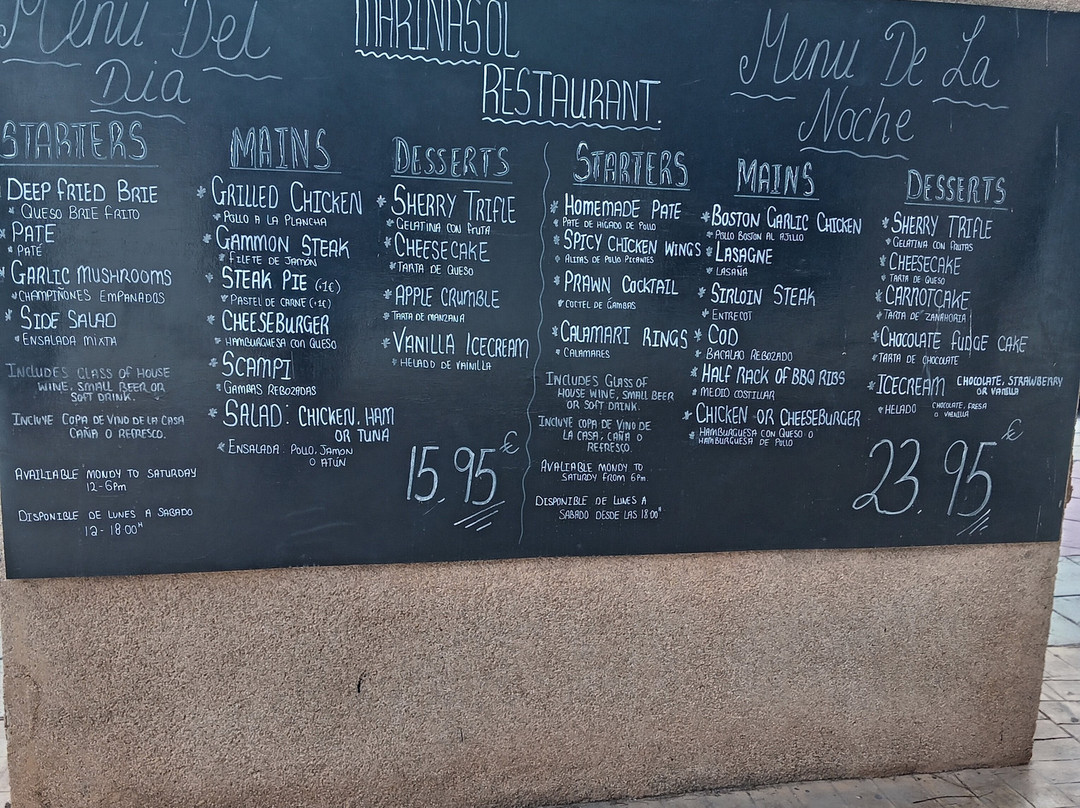 Menu Del
Dia
STARTERS
* DEEP FRIED BRIE
* QUESO BRIE FRITO
* PATE
* PATÉ
* GARLIC MUSHROOMS
* CHAMPIÑONES EMPANADOS
* SIDE SALAD
* ENSALADA MIXTA
INCLUDES GLASS OF HOUSE
WINE, SMALL BEER OR
SOFT DRINK.
INCLUYE COPA DE VINO DE LA CASA
CAÑA O REFRESCO.
AVAILIABLE MONDY TO SATURDAY
12-6pm
DISPONIBLE DE LUNES A SABADO
12-18:00H
MAINS
* GRILLED CHICKEN
* POLLO A LA PLANCHA
* GAMMON STEAK
* FILETE DE JAMON
* STEAK PIE (+1€)
* PASTEL DE CARNE (+1€)
* CHEESEBURGER
* HAMBURGUESA CON QUESO
* SCAMPI
* GAMBAS REBOZADAS
* SALAD: CHICKEN, HAM
OR TUNA
* ENSALADA: POLLO, JAMON
O ATÚN
MARINASOL
RESTAURANT.
DESSERTS
* SHERRY TRIFLE
* GELATINA CON FRUTA
* CHEESECAKE
* TARTA DE QUESO
* APPLE CRUMBLE
* TARTA DE MANZANA
* VANILLA ICECREAM
* HELADO DE VAINILLA
15,95€
Menu De La
Noche
STARTERS
* HOMEMADE PATE
* PATE DE HIGADO DE POLLO
* SPICY CHICKEN WINGS
* ALITAS DE POLLO PICANTES
* PRAWN COCKTAIL
* COCTEL DE GAMBAS
* CALAMARI RINGS
* CALAMARES
INCLUDES GLASS OF
HOUSE WINE, SMALL BEER
OR SOFT DRINK.
INCLUYE COPA DE VINO DE
LA CASA, CAÑA O
REFRESCO.
AVALIABLE MONDY TO
SATURDY FROM 6pm.
DISPONIBLE DE LUNES A
SABADO DESDE LAS 18:00H
MAINS
* BOSTON GARLIC CHICKEN
* POLLO BOSTON AL AJILLO
* LASAGNE
* LASAÑA
* SIRLOIN STEAK
* ENTRECOT
* COD
* BACALAO REBOZADO
* HALF RACK OF BBQ RIBS
* MEDIO COSTILLAR
* CHICKEN OR CHEESEBURGER
* HAMBURGUESA CON QUESO O
HAMBURGUESA DE POLLO
DESSERTS
* SHERRY TRIFLE
* GELATINA CON FRUTAS
* CHEESECAKE
* TARTA DE QUESO
* CARMOTCAKE
* TARTA DE ZANAHORIA
* CHOCOLATE FUDGE CAKE
* TARTA DE CHOCOLATE
* ICECREAM CHOCOLATE, STRAWBERRY
OR VANILLA
* HELADO CHOCOLATE, FRESA
O VAINILLA
23.95€